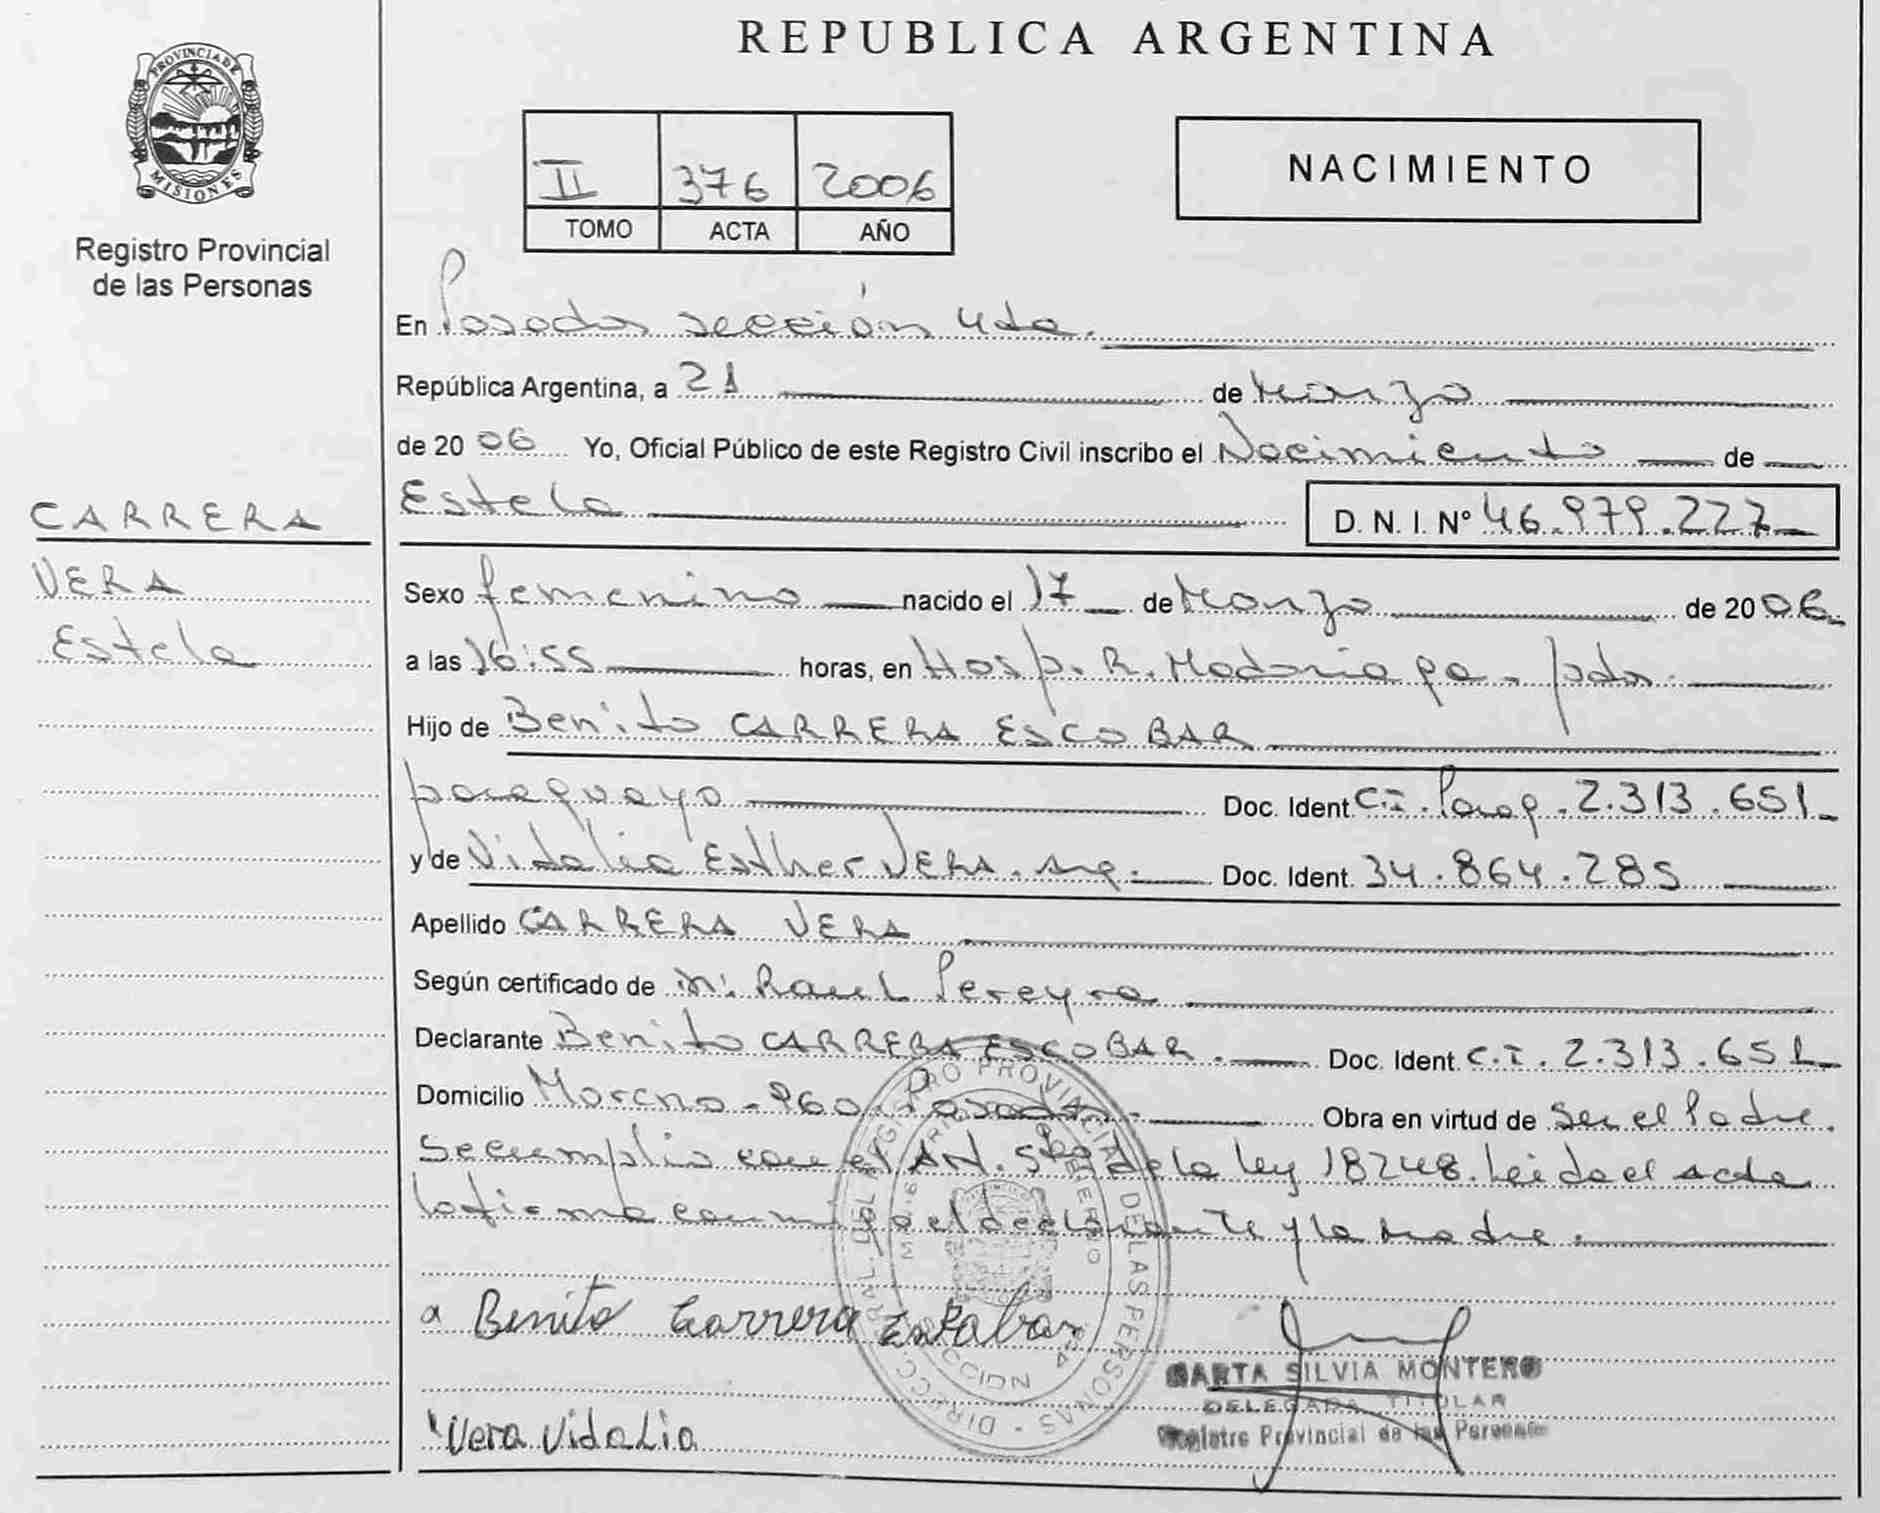 REPUBLICA ARGENTINA
PROVINCIA DE
MISIONES
Registro Provincial
de las Personas
II 376 2006
TOMO ACTA AÑO
NACIMIENTO
En Posadas sección 4ta.
República Argentina, a 21 de Marzo
de 2006 Yo, Oficial Público de este Registro Civil inscribo el Nacimiento de
Estela D. N. I. Nº 46.979.227
CARRERA
VERA
Estela
Sexo femenino nacido el 17 de Marzo de 2006
a las 16:55 horas, en Hosp. R. Madariaga - pdas.
Hijo de Benito CARRERA ESCOBAR
paraguayo Doc. Ident. C.I. Parag. 2.313.651
y de Vidalia Esther VERA. arg. Doc. Ident. 34.864.285
Apellido CARRERA VERA
Según certificado de Raul Pereyra
Declarante Benito CARRERA ESCOBAR. Doc. Ident. C.I. 2.313.651
Domicilio Moreno - 960. Posadas Obra en virtud de ser el Padre.
Se cumplio con el Art. 5to de la ley 18248. Leida el acta
la firma conmigo el declarante y la madre.
Benito Carrera
MARTA SILVIA MONTERO
DELEGADA TITULAR
Registro Provincial de las Personas
Vera Vidalia